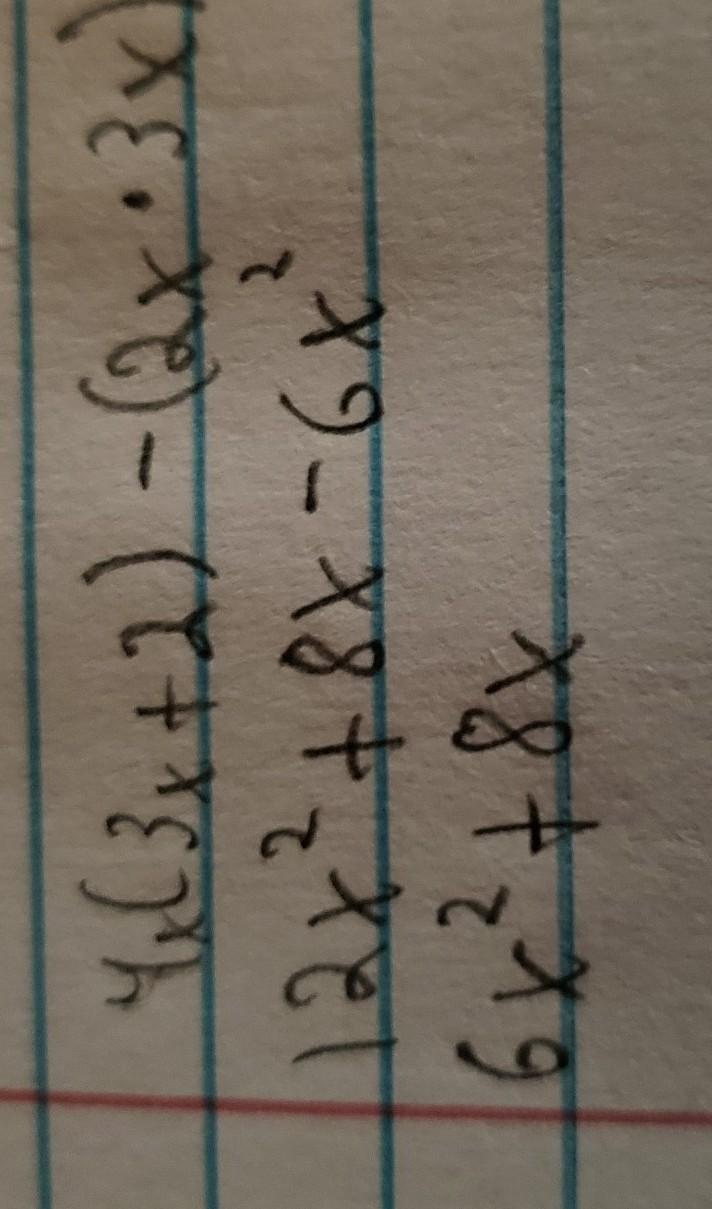 4x(3x+2) - (2x · 3x)
12x² + 8x - 6x²
6x² + 8x